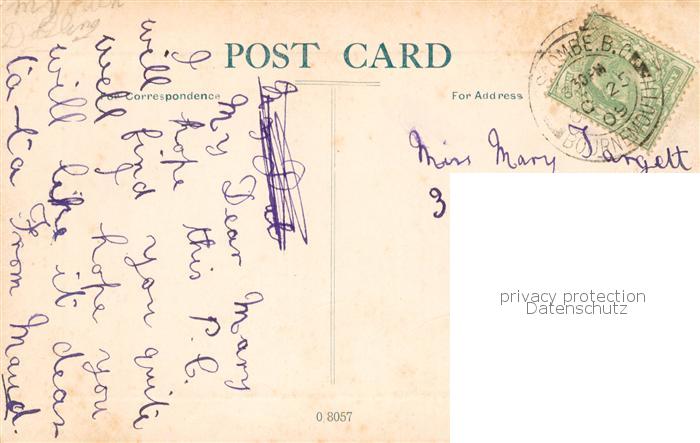 My own
Darling
POST CARD
For Correspondence
For Address
My Dear Mary
I hope this P.C.
will find you quite
well I hope you
will like it dear
Ta-ta From Maud.
Miss Mary Targett
3
BOSCOMBE.B.O.
BOURNEMOUTH
OC 2
09
privacy protection
Datenschutz
0 8057